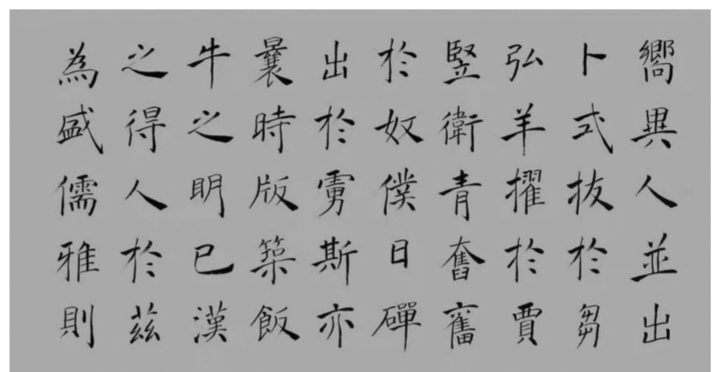 嚮異人並出
卜式拔於芻
弘羊擢於賈
竪衛青奮
於奴僕日磾
出於斯亦
曩時版築飯
牛之明已漢
之得人於茲
為盛儒雅則